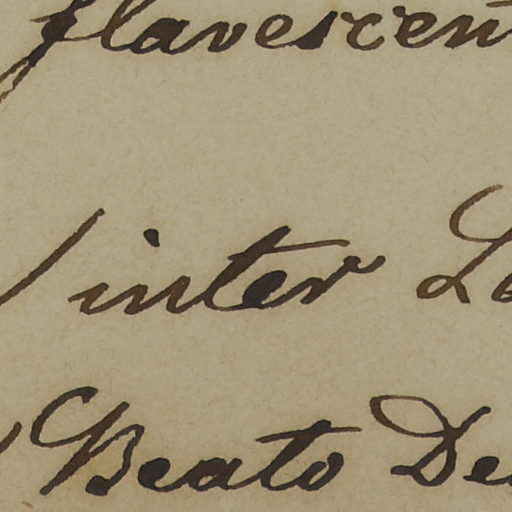 flavescen
Winter L
Beato De